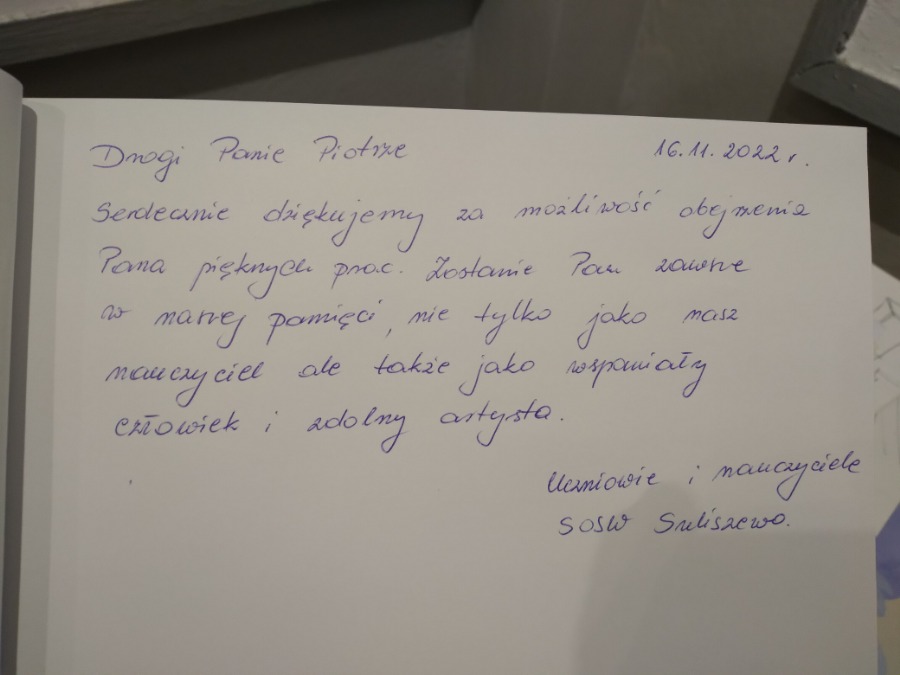 Drogi Panie Piotrze 16.11.2022 r.
Serdecznie dziękujemy za możliwość obejrzenia
Pana pięknych prac. Zostanie Pan zawsze
w naszej pamięci, nie tylko jako nasz
nauczyciel ale także jako wspaniały
człowiek i zdolny artysta.
Uczniowie i nauczyciele
SOSW Suliszewo.